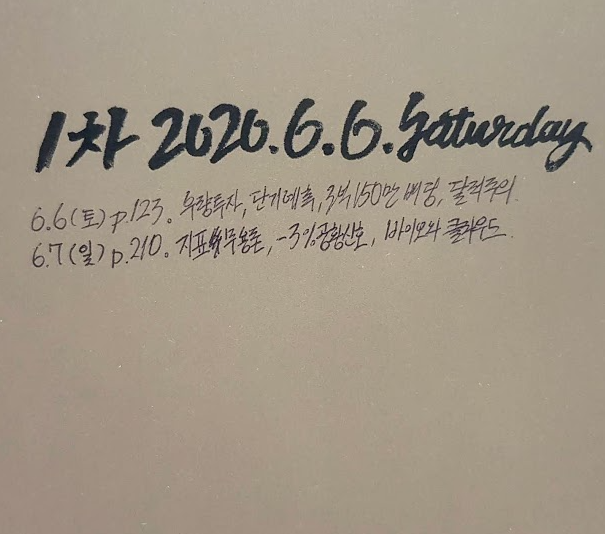 1차 2020.6.6. Saturday
6.6(토) p.123. 우량투자, 단기예측, 3부150만 베팅, 달러주의.
6.7(일) p.210. 지표무용론, -3%공황신호, 1바이오와 클라우드.